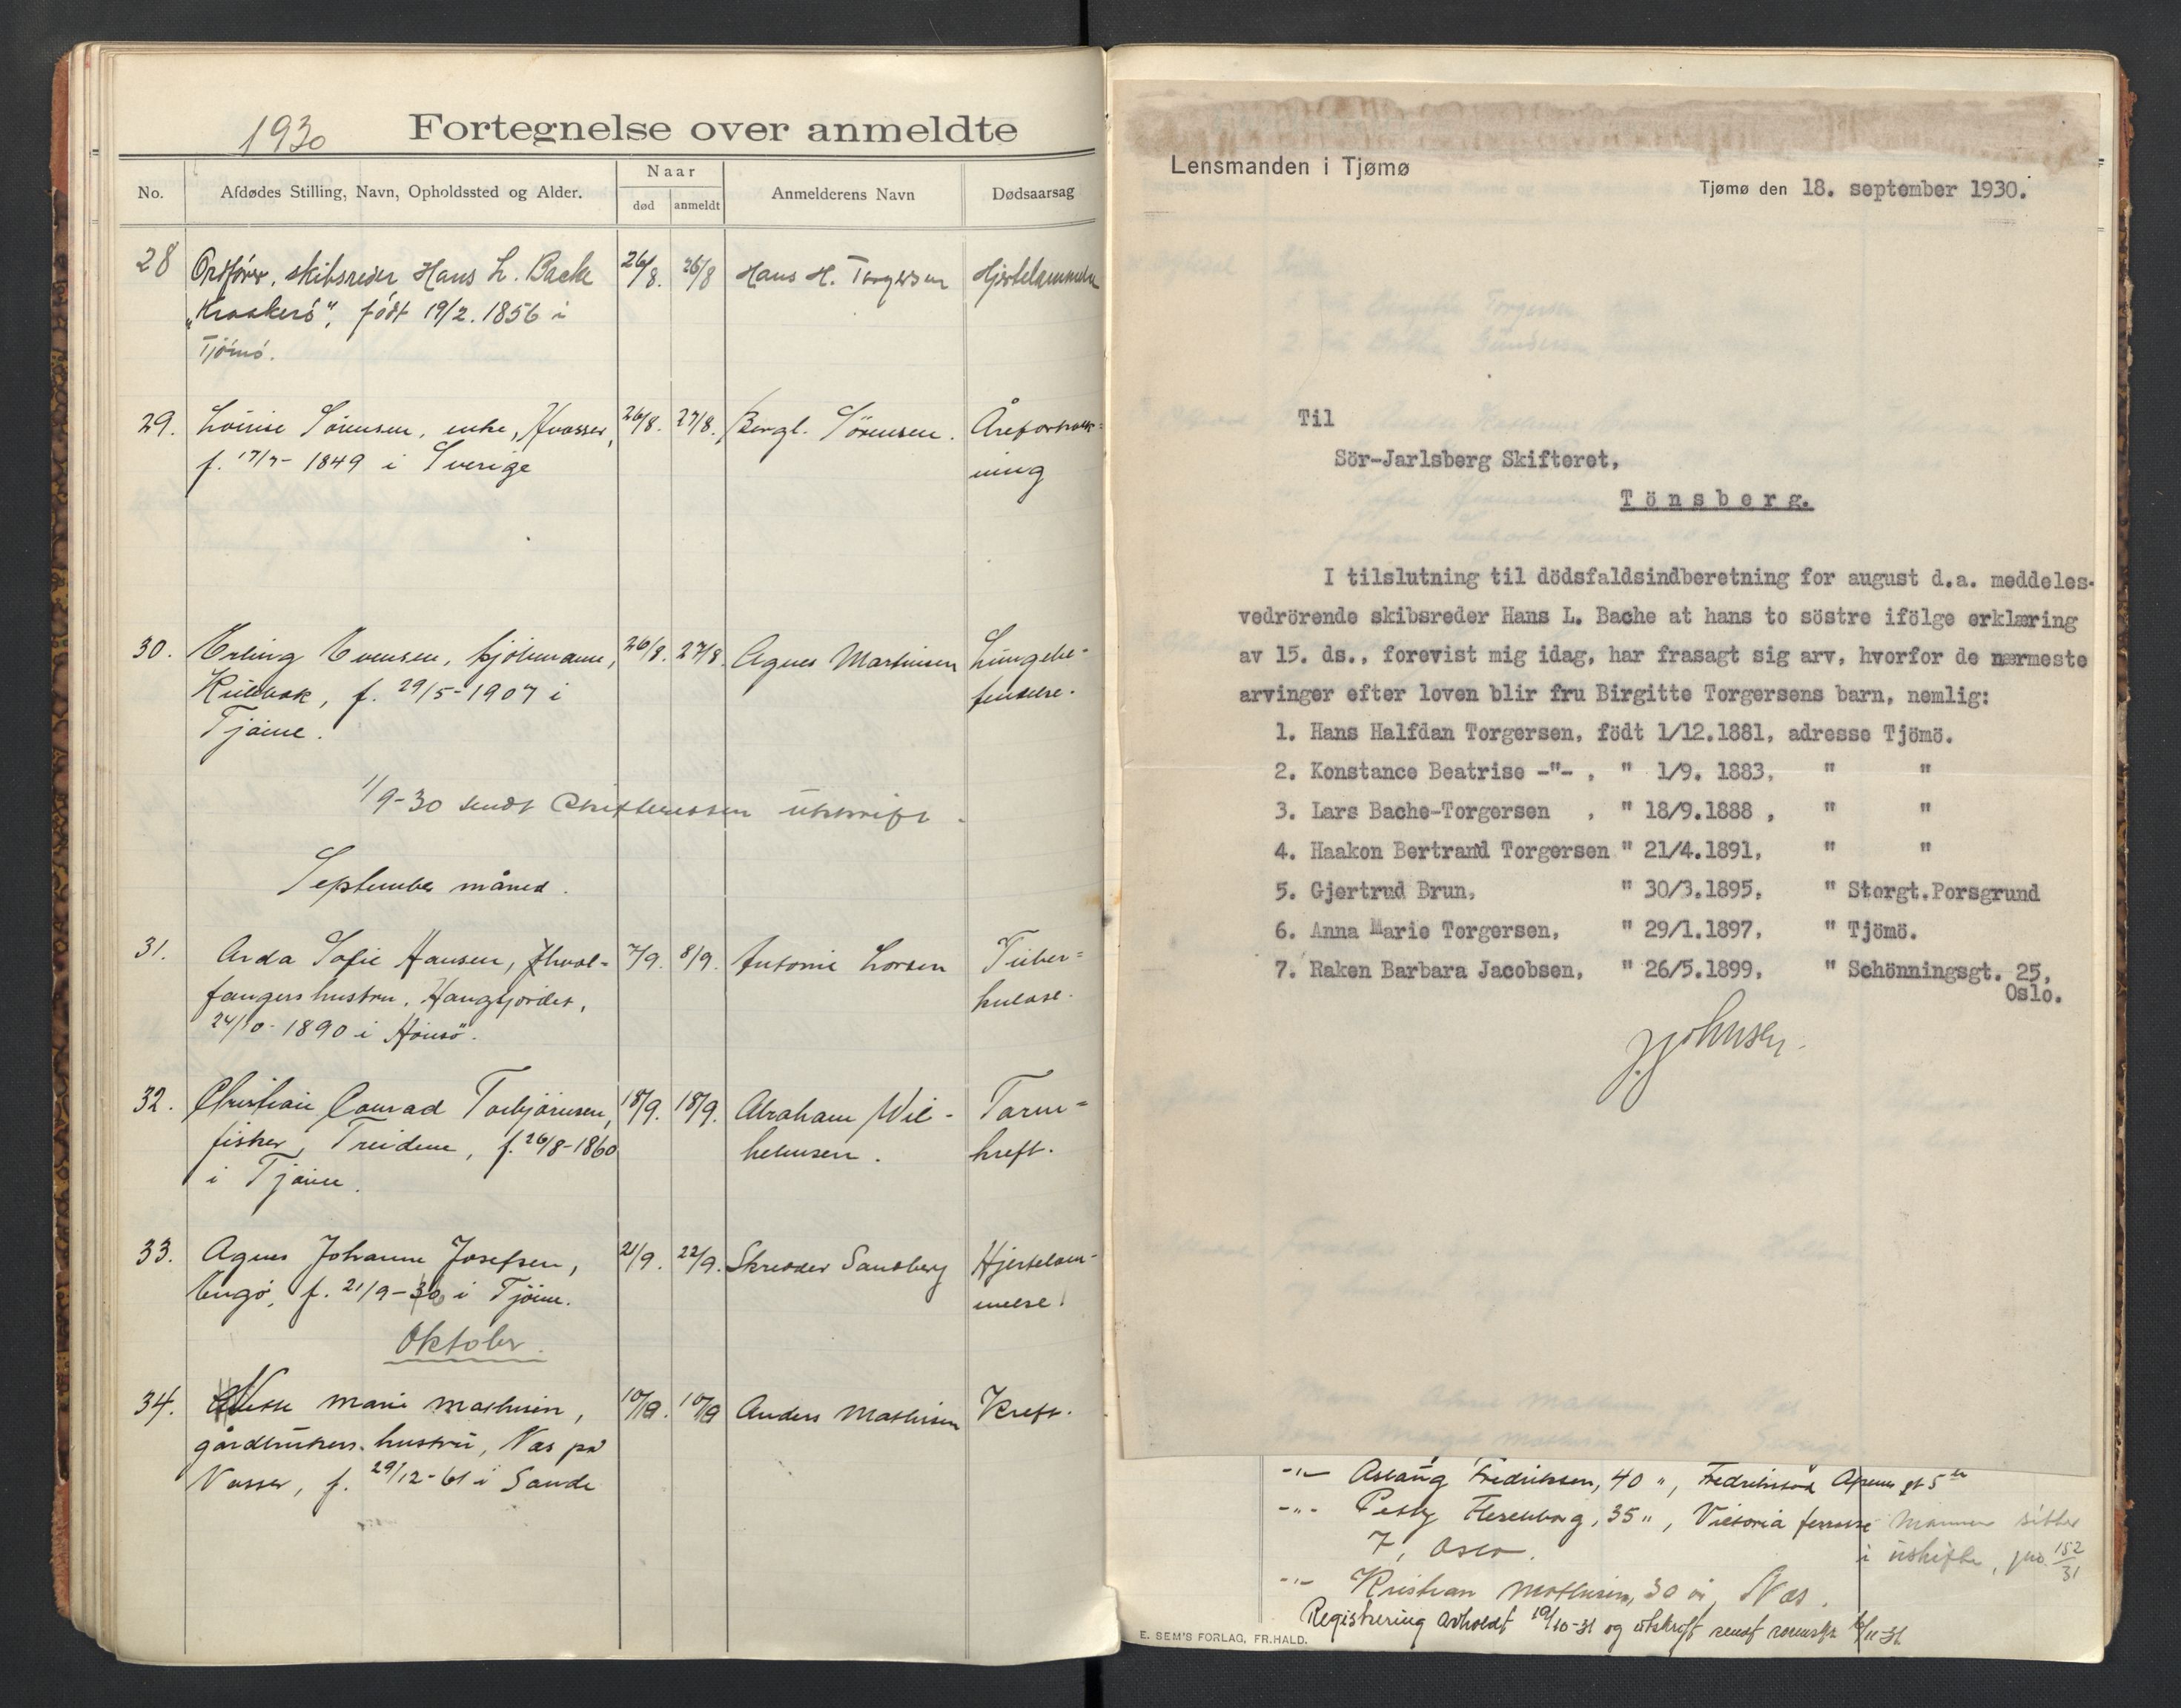 1930 Fortegnelse over anmeldte
No. Afdødes Stilling, Navn, Opholdssted og Alder. Naar død anmeldt Anmelderens Navn Dødsaarsag
28 Ordfører, skibsreder Hans L. Bache 26/8. 26/8 Hans H. Torgersen Hjertelammelse
"Kraakerö", födt 19/2. 1856 i
Tjömö.
29. Lovise Sörensen, enke, Hvasser, 26/8. 27/8. Bergl. Sörensen. Åreforkalk=
f. 17/7- 1849 i Sverige ning
30. Erling Evensen, sjömann, 26/8. 27/8. Agnes Martinsen Lungebe=
f. 29/5-1907 i tendelse.
Tjöme.
1/9-30 sendt Skifteretten utskrift.
September måned.
31. Arda Sofie Hansen, hval= 7/9. 8/9. Antonie Larsen Tuber=
fangers hustru, Haugfjordet, kulose.
24/10-1890 i
32. Christian Conrad Torbjörnsen, 18/9. 18/9. Abraham Wil- Tarm=
fisker, Treidene, f. 26/8-1860 helmsen. kreft.
i Tjöme.
33. Agnes Johanne Josefsen, 21/9. 22/9. Skredder Sandberg Hjertelam-
Engö, f. 21/9-30 i Tjöme. melse.
Oktober.
34. Marie Mathisen, 10/10. 10/10 Anders Mathisen Kreft.
gårdbrukers hustru, Næs på
Vasser, f. 29/12-61 i Sande
Lensmanden i Tjømø
Tjømø den 18. september 1930.
Til
Sör-Jarlsberg Skifteret,
Tönsberg.
I tilslutning til dödsfaldsindberetning for august d.a. meddeles-
vedrörende skibsreder Hans L. Bache at hans to söstre ifölge erklæring
av 15. ds., forevist mig idag, har frasagt sig arv, hvorfor de nærmeste
arvinger efter loven blir fru Birgitte Torgersens barn, nemlig:
1. Hans Halfdan Torgersen, födt 1/12.1881, adresse Tjömö.
2. Konstance Beatrise -"- , " 1/9. 1883, " "
3. Lars Bache-Torgersen , " 18/9.1888 , " "
4. Haakon Bertrand Torgersen " 21/4.1891, " "
5. Gjertrud Brun, " 30/3.1895, " Storgt.Porsgrund
6. Anna Marie Torgersen, " 29/1.1897, " Tjömö.
7. Raken Barbara Jacobsen, " 26/5.1899, " Schönningsgt. 25,
Oslo.
J. Johnsen.
-"- Aslaug Fredriksen, 40 ",  Fredrikstad
-"- Petty Flesenborg, 35 ", Victoria terrasse Mannen sitter
7, Oslo. i uskifte, jno. 152/31
-"- Kristian Mathisen, 30 år, Næs.
Registrering avholdt 19/10-31 og utskrift sendt
E. SEM'S FORLAG, FR.HALD.